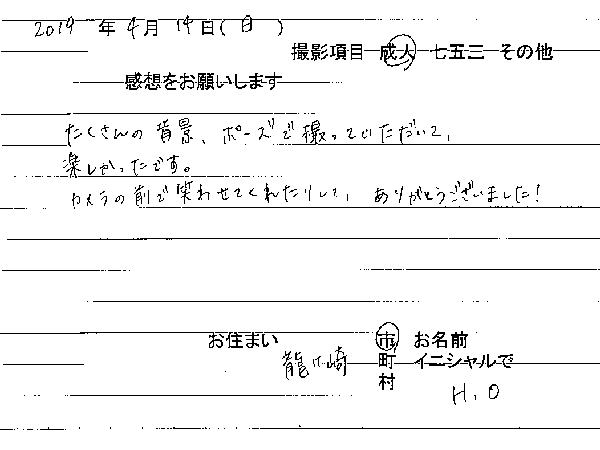 2019 年 4 月 14 日 ( 日 )
撮影項目 成人 七五三 その他
感想をお願いします
たくさんの 背景、ポーズで 撮っていただいて、
楽しかったです。
カメラの前で笑わせてくれたりして、ありがとうございました!
お住まい 市 お名前
龍ケ崎 町 イニシャルで
村 H.O